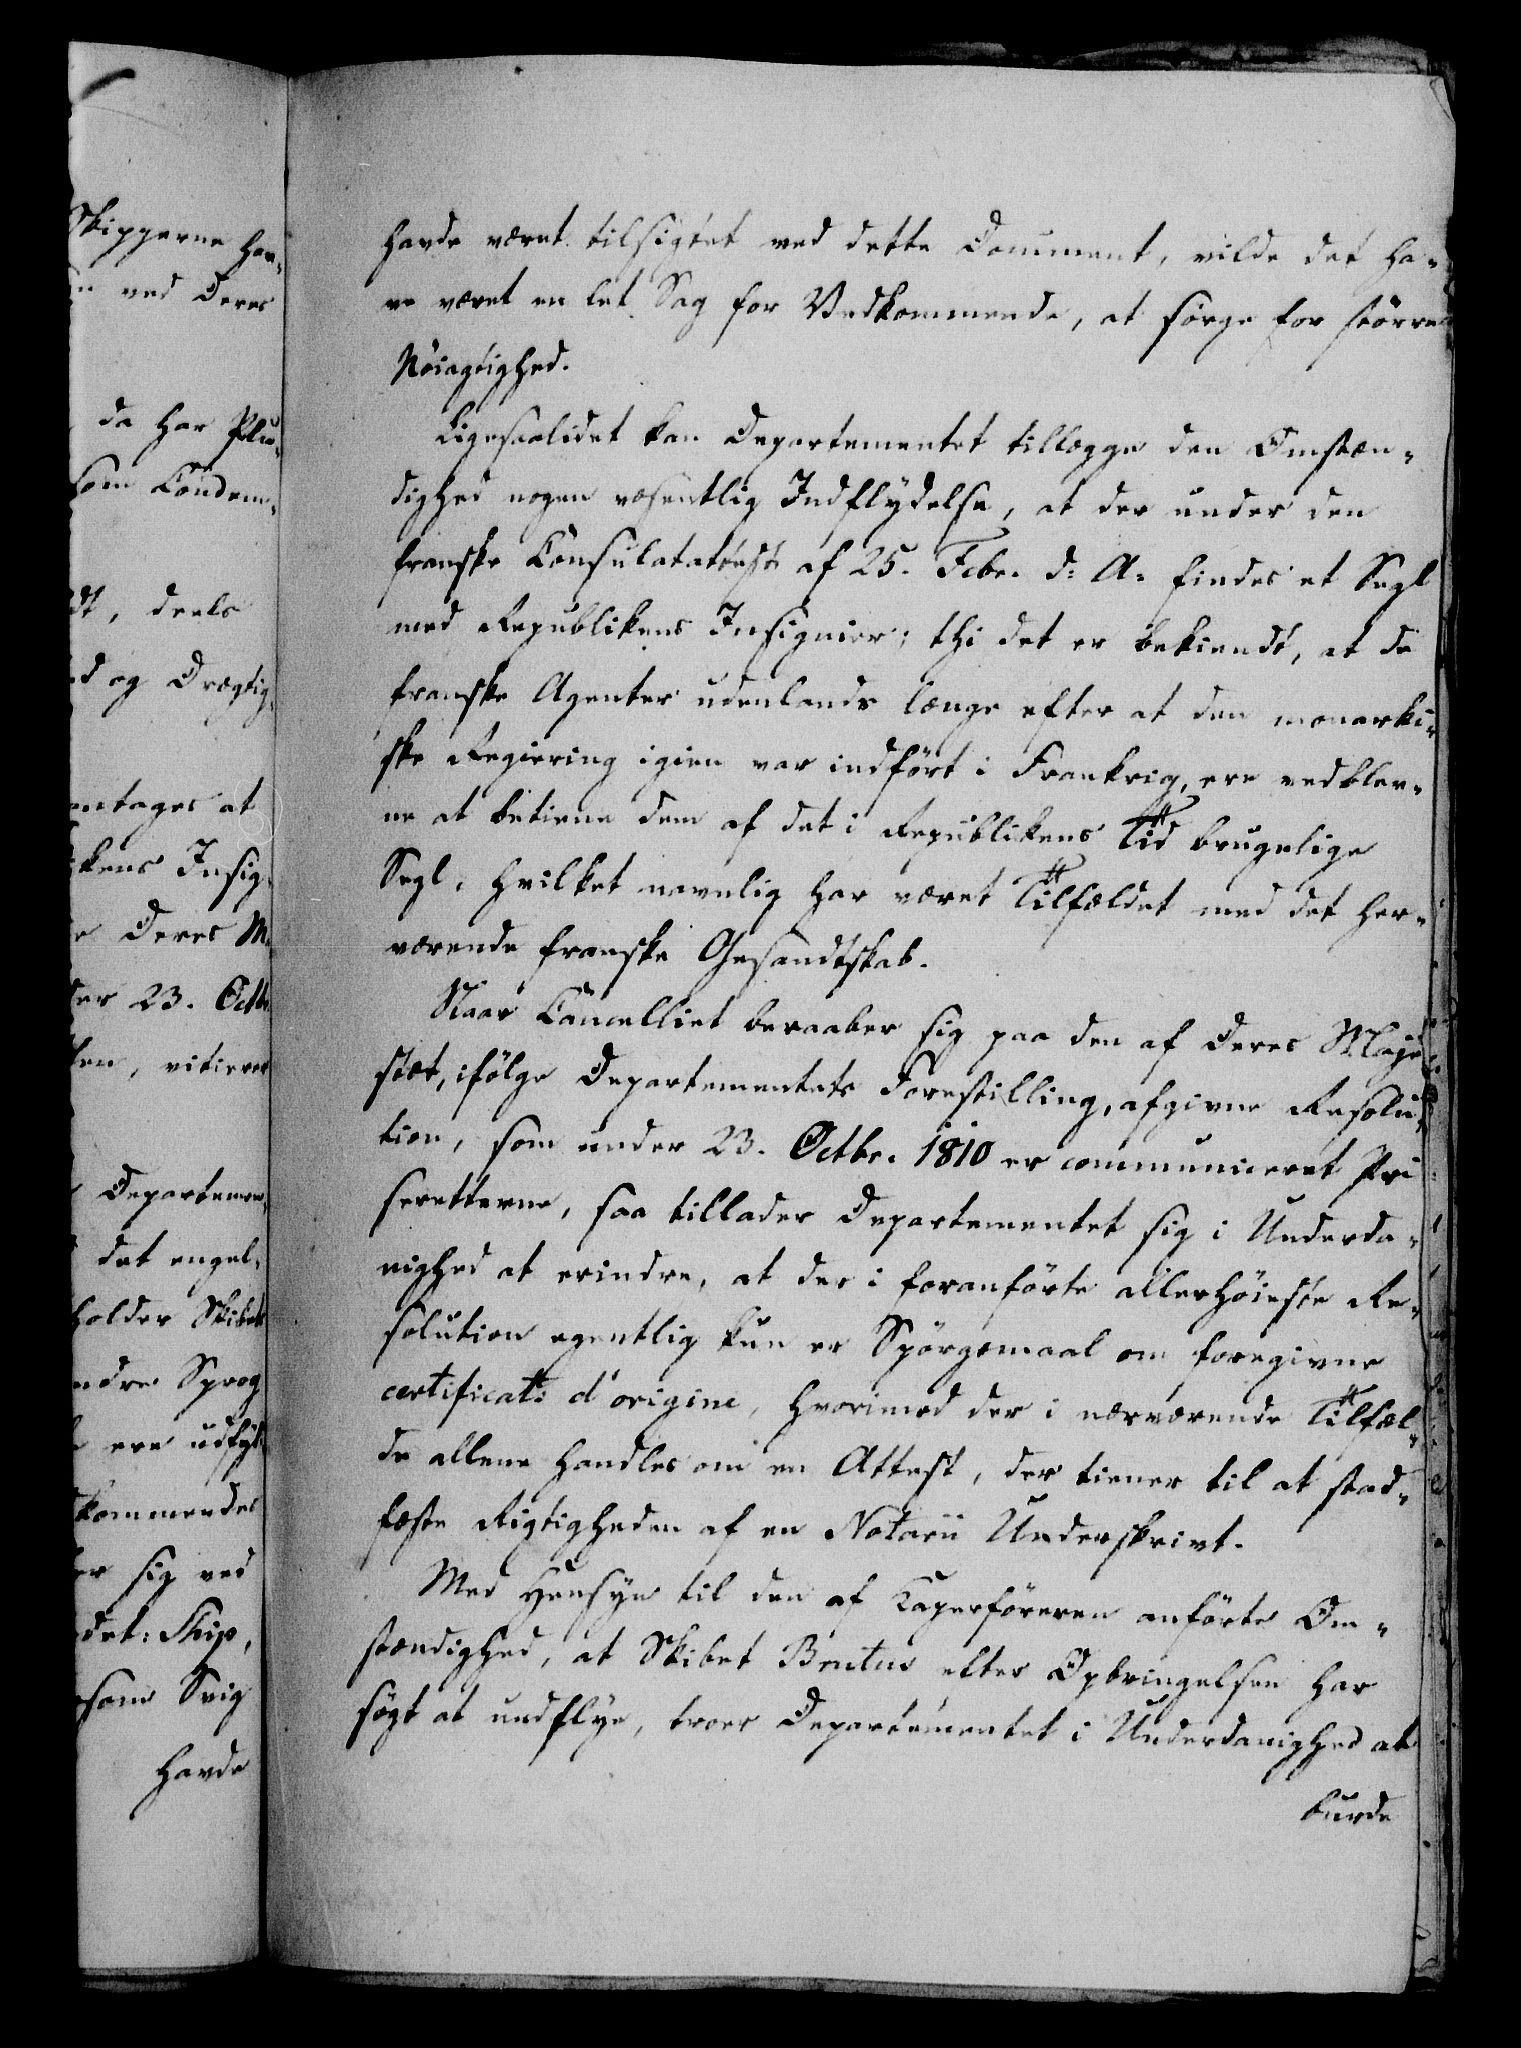 Skipperne har-
ved Deres
da har Plu-
som Condem-
dt, deels
d og Drægtig-
mtages at
kens Insig-
e Deres M
der 23. Octb.
ten, vitieres
Departemen-
det engel-
holder Skibets
ndre Sprog
ere udfyl
kommendes
er sig ved
det: Ship,
som Svig
havde
havde været tilsigtet ved dette Document, vilde det ha-
ve været en let Sag for Vedkommende, at sörge for större
Nöiagtighed.
Ligesaalidet kan Departementet tillægge den Omstæn-
dighed nogen væsentlig Indflydelse, at der under den
franske Consulatattest af 25. Febr. d: A: findes et Segl
med Republikens Insignier; thi det er bekiendt, at de
franske Agenter udenlands længe efter at den monarki-
ske Regiering igien var indfört i Frankrig, ere vedblev-
ne at betiene dem af det i Republikens Tid brugelige
Segl, hvilket navnlig har været Tilfældet med det her-
værende franske Gesandtskab.
Naar Cancelliet beraaber sig paa den af Deres Maje
stæt, ifölge Departementets Forestilling, afgivne Resolu-
tion, som under 23. Octbr. 1810 er communiceret Pri
seretterne, saa tillader Departementet sig i Underda-
nighed at erindre, at der i foranförte allerhöieste Re-
solution egentlig kun er Spörgsmaal om foregivne
certificats d'origine, hvorimod der i nærværende Tilfæl-
de allene handles om en Attest, der tiener til at stad-
fæste Rigtigheden af en Notarii Underskrivt.
Med Hensyn til den af Kaperföreren anförte Om-
stændighed, at Skibet Brutus efter Opbringelsen har
sögt at undflye, troer Departementet i Underdanighed at
burde